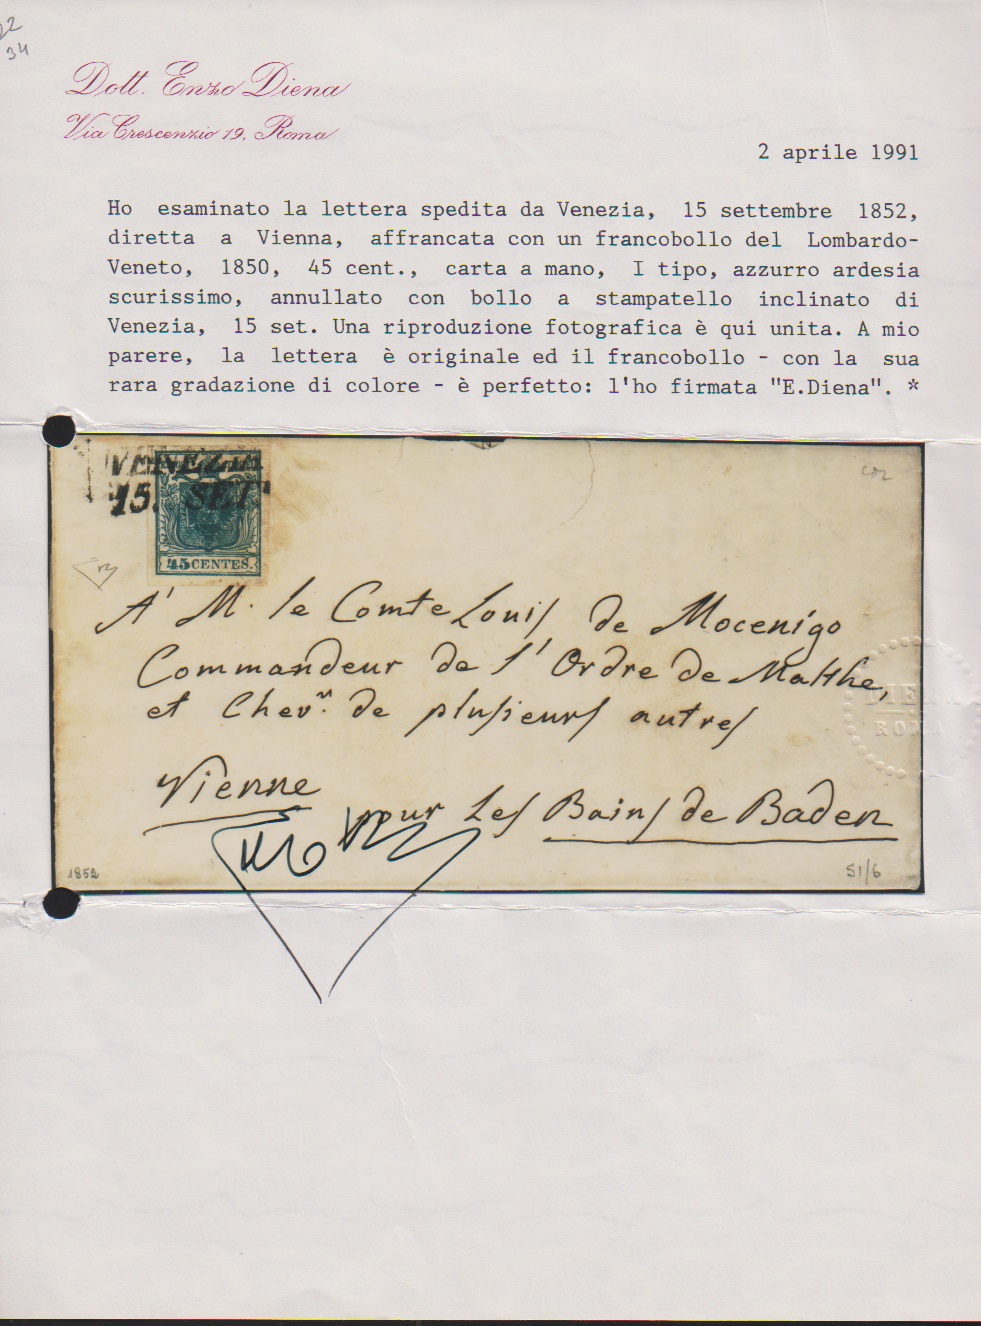 22
34
Dott. Enzo Diena
Via Crescenzio 19. Roma
2 aprile 1991
Ho esaminato la lettera spedita da Venezia, 15 settembre 1852,
diretta a Vienna, affrancata con un francobollo del Lombardo-
Veneto, 1850, 45 cent., carta a mano, I tipo, azzurro ardesia
scurissimo, annullato con bollo a stampatello inclinato di
Venezia, 15 set. Una riproduzione fotografica è qui unita. A mio
parere, la lettera è originale ed il francobollo - con la sua
rara gradazione di colore - è perfetto: l'ho firmata "E.Diena". *
VENEZIA
15. SET
45 CENTES.
A' M. le Comte Louis de Mocenigo
Commandeur de l'Ordre de Malthe,
et Chev.r de plusieurs autres
Vienne
pour Les Bains de Baden
DIENA
ROMA
1852
S1/6